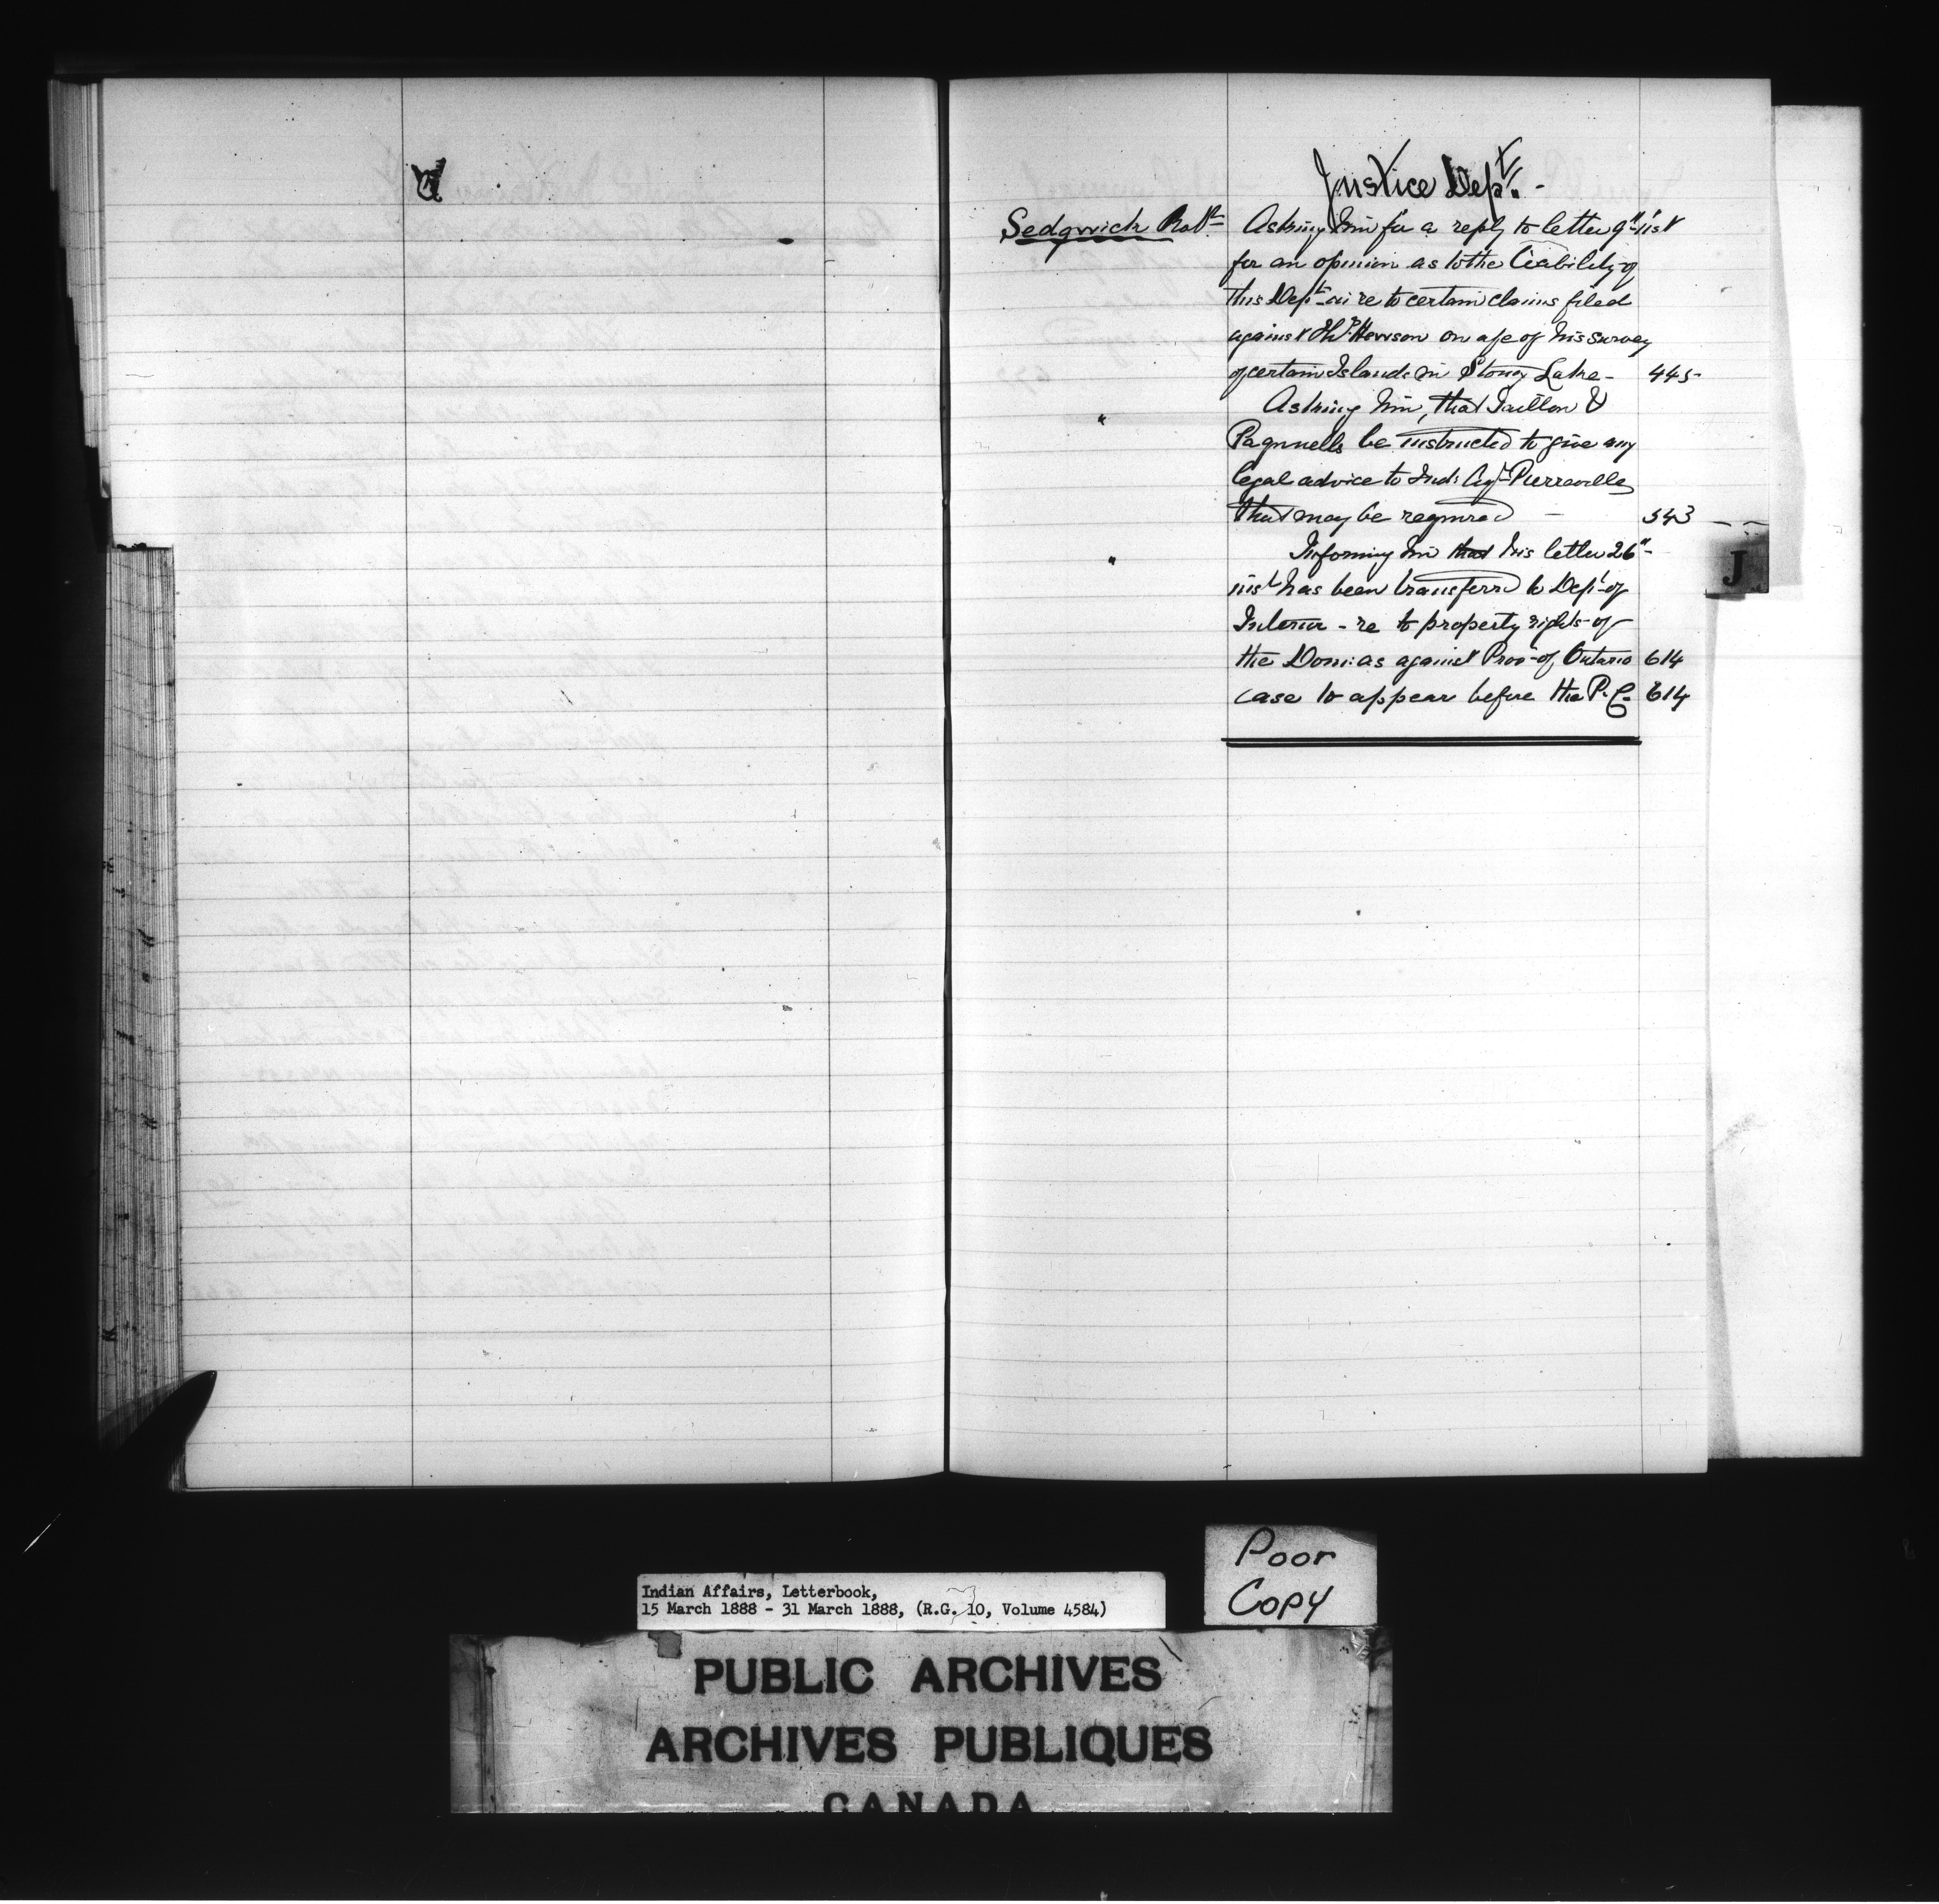 Justice Dept. -
Sedgwick Robt Asking him for a reply to letter 9" inst
for an opinion as to the liability of
this Dept in re to certain claims filed
against Hewson on a/c of his survey
of certain Islands in Stoney Lake - 445
" Asking him, that Taillon &
Pagnuells be instructed to give any
legal advice to Ind: Agt Pierreville
that may be required - 543
" Informing him that his letter 26"
inst has been transferred to Dept of
Interior - re to property rights of
the Dom: as against Prov of Ontario 614
case to appear before the P.C. 614
J
Poor
Copy
Indian Affairs, Letterbook,
15 March 1888 - 31 March 1888, (R.G. 10, Volume 4584)
PUBLIC ARCHIVES
ARCHIVES PUBLIQUES
CANADA